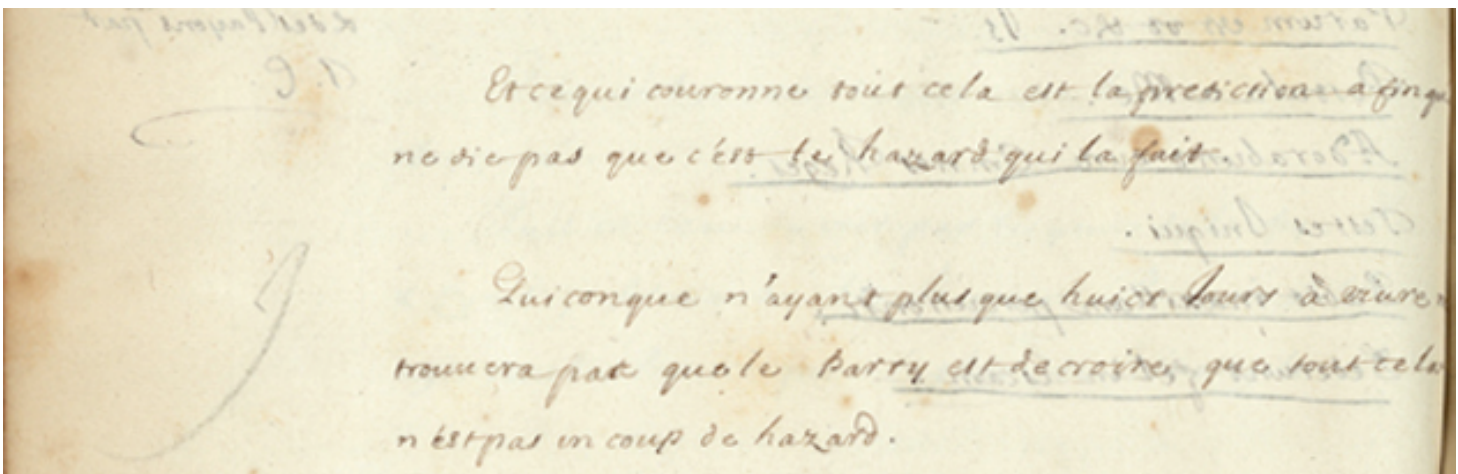 Et ce qui couronne tout cela est la prediction afin qu
ne die pas que c'est le hazard qui la fait.
Quiconque n'ayant plus que huict Jours à viure n
trouuera pas que le Party est de croire que tout cela
n'est pas un coup de hazard.